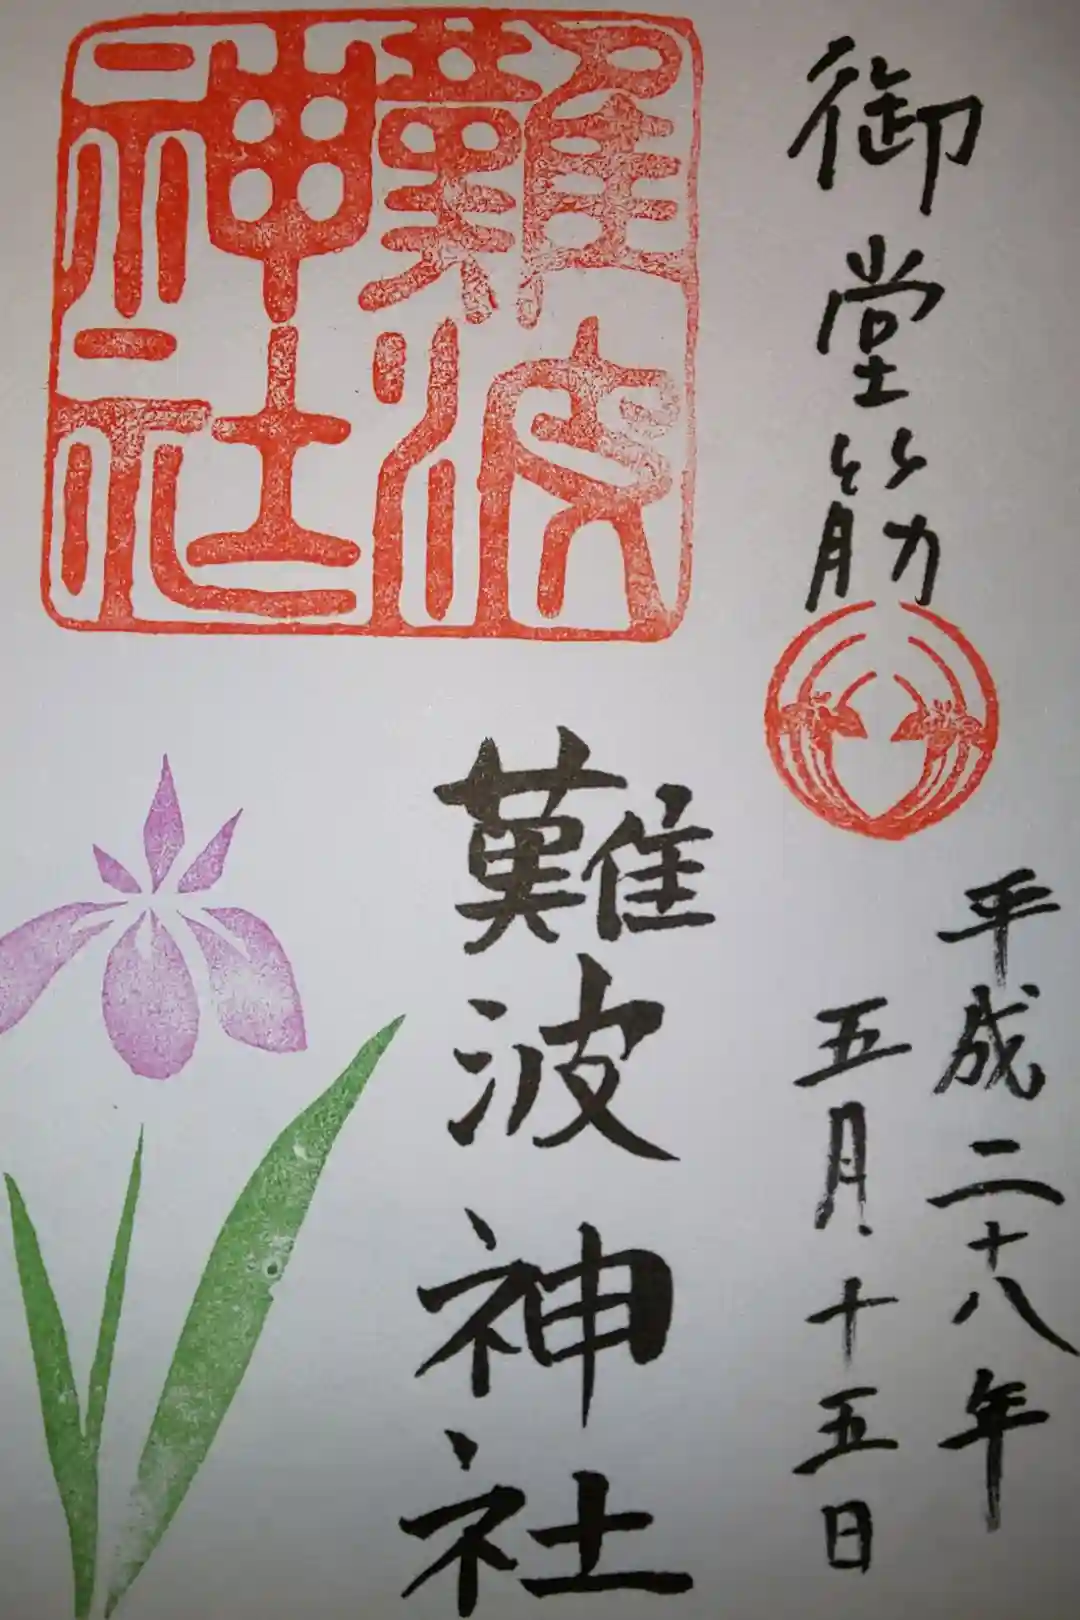 御堂筋
平成二十八年
五月十五日
難波神社
難波
神社